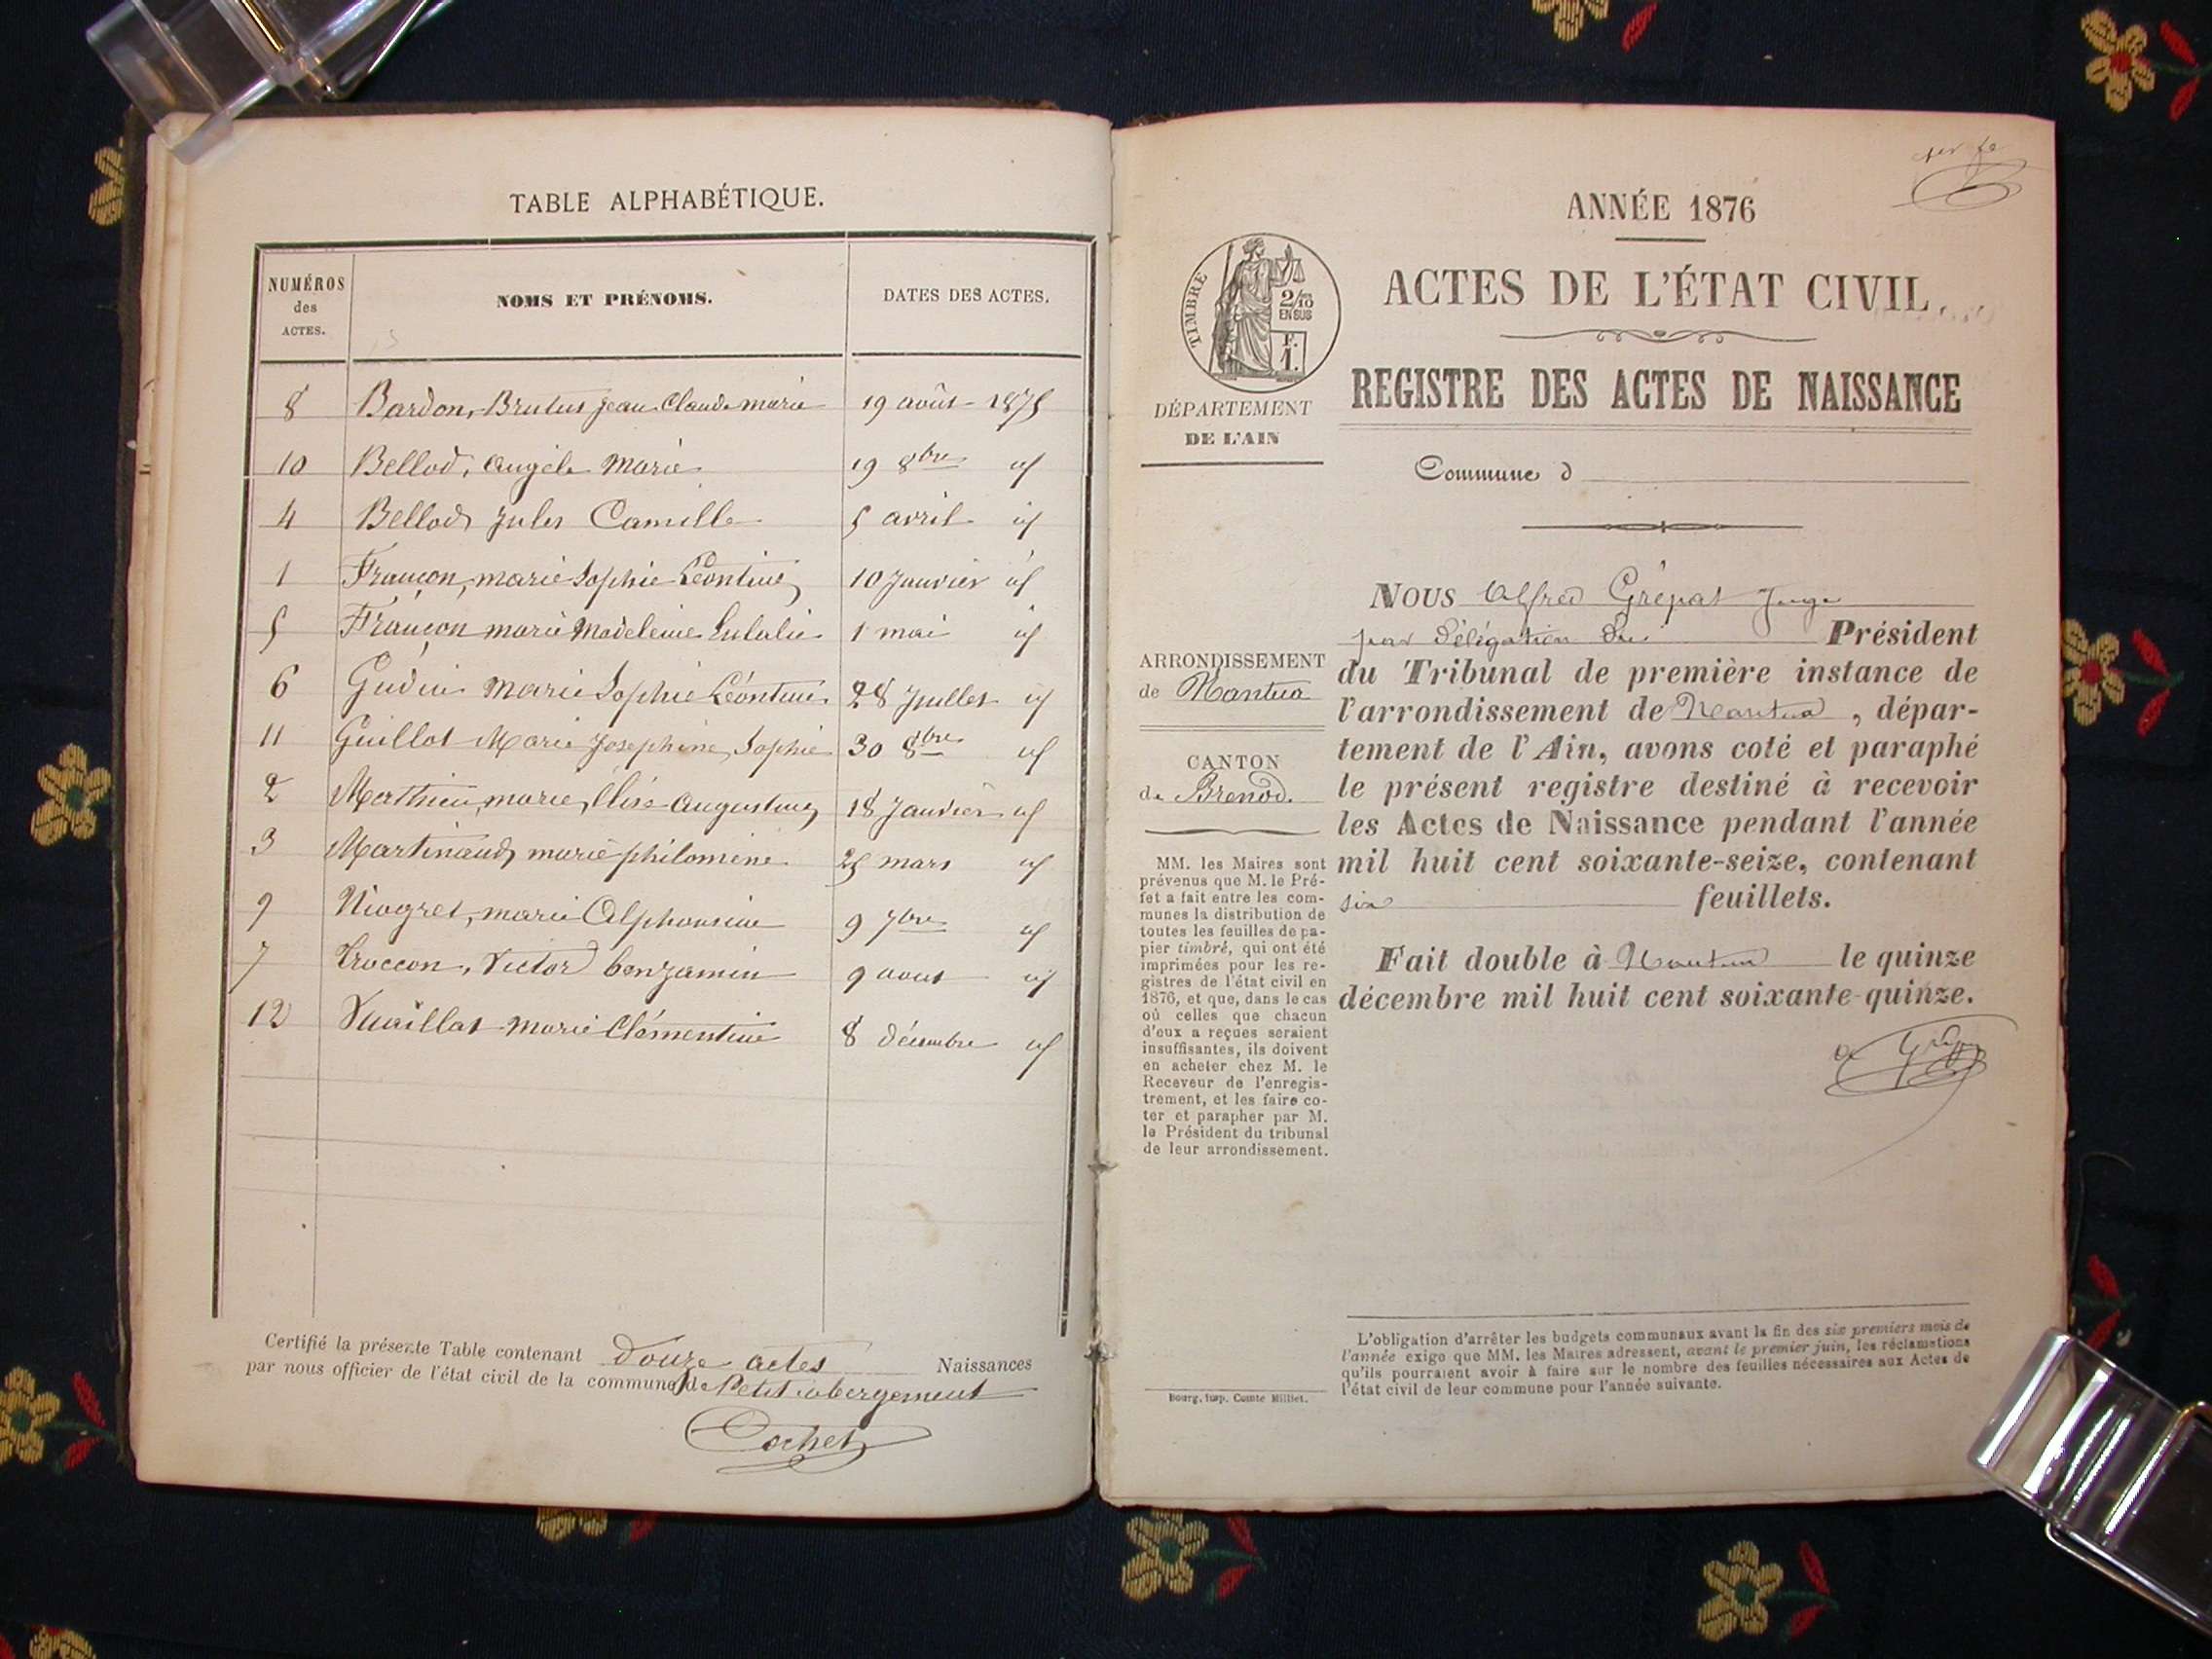 TABLE ALPHABÉTIQUE.
NUMÉROS des ACTES. NOMS ET PRÉNOMS. DATES DES ACTES.
8 Bardon, Brutus Jean Claude marie 19 août 1875
10 Bellod, Angèle Marie 19 8bre id
4 Bellod Jules Camille 5 avril id
1 Françon, marie Sophie Léontine 10 Janvier id
5 Françon marie Madeleine Eulalie 1 mai id
6 Gudin Marie Sophie Léontine 28 Juillet id
11 Guillot Marie Joséphine, Sophie 30 8bre id
2 Mathieu, marie, Elise Augustine 18 Janvier id
3 Martinand, marie philomène 25 mars id
9 Niogret, marie Alphonsine 9 7bre id
7 Troccon, Victor benjamin 9 aout id
12 Vuaillat marie Clémentine 8 décembre id
Certifié la présente Table contenant douze actes Naissances
par nous officier de l'état civil de la commune de Petit abergement
Cochet
ANNÉE 1876
ACTES DE L'ÉTAT CIVIL
TIMBRE
2/10
EN SUS
F.
1.
REGISTRE DES ACTES DE NAISSANCE
DÉPARTEMENT
DE L'AIN
Commune d
NOUS Alfred Grépat Juge
par délégation du Président
du Tribunal de première instance de
l'arrondissement de Nantua, dépar-
tement de l'Ain, avons coté et paraphé
le présent registre destiné à recevoir
les Actes de Naissance pendant l'année
mil huit cent soixante-seize, contenant
six feuillets.
Fait double à Nantua le quinze
décembre mil huit cent soixante-quinze.
ARRONDISSEMENT
de Nantua
CANTON
de Brénod.
MM. les Maires sont
prévenus que M. le Pré-
fet a fait entre les com-
munes la distribution de
toutes les feuilles de pa-
pier timbré, qui ont été
imprimées pour les re-
gistres de l'état civil en
1876, et que, dans le cas
où celles que chacun
d'eux a reçues seraient
insuffisantes, ils doivent
en acheter chez M. le
Receveur de l'enregis-
trement, et les faire co-
ter et parapher par M.
le Président du tribunal
de leur arrondissement.
L'obligation d'arrêter les budgets communaux avant la fin des six premiers mois de
l'année exige que MM. les Maires adressent, avant le premier juin, les réclamations
qu'ils pourraient avoir à faire sur le nombre des feuilles nécessaires aux Actes de
l'état civil de leur commune pour l'année suivante.
Bourg, imp. Comte Milliet.